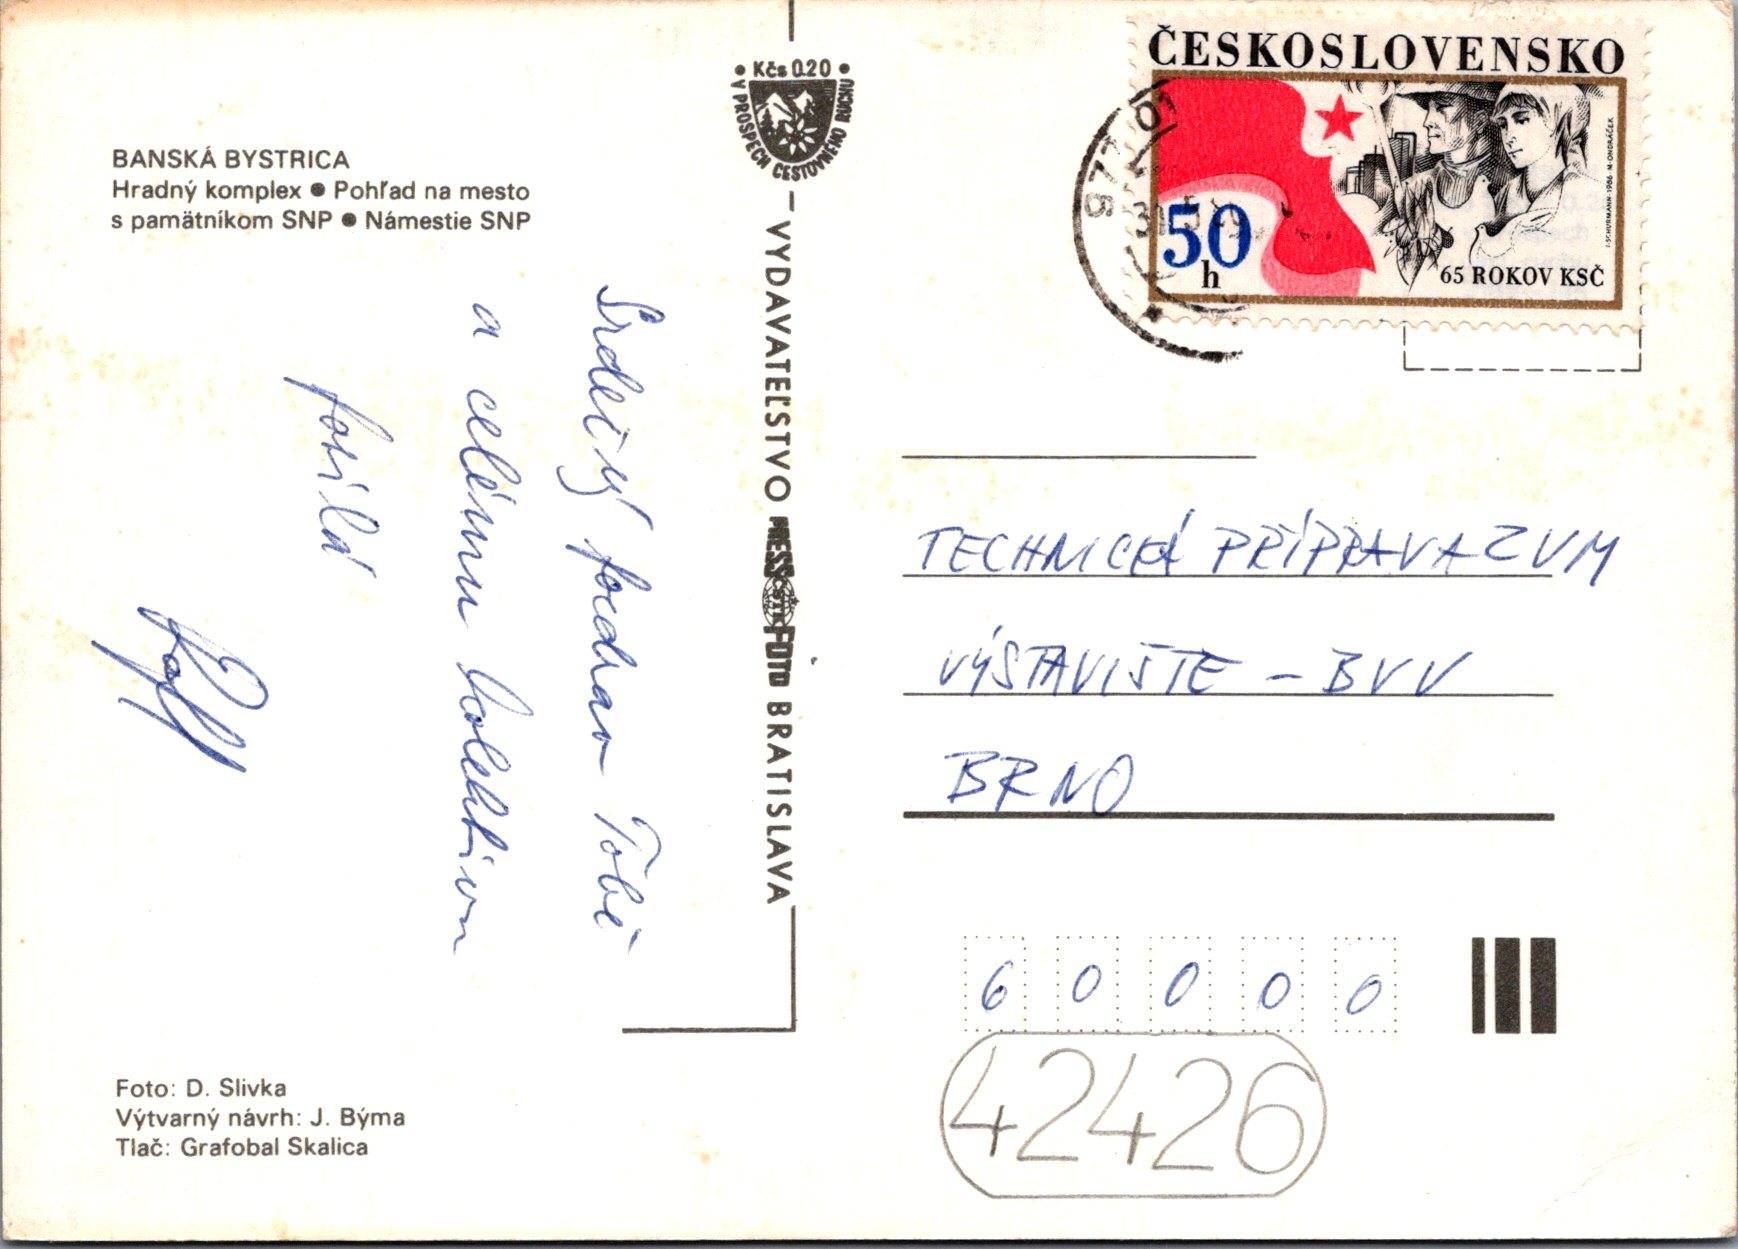 BANSKÁ BYSTRICA
Hradný komplex ● Pohľad na mesto
s pamätníkom SNP ● Námestie SNP
Srdečný pozdrav Tobě
a celému kolektivu
posílá
Foto: D. Slivka
Výtvarný návrh: J. Býma
Tlač: Grafobal Skalica
• Kčs 0.20 •
V PROSPECH CESTOVNÉHO RUCHU
VYDAVATEĽSTVO PRESSFOTO BRATISLAVA
ČSTK
ČESKOSLOVENSKO
50
h
65 ROKOV KSČ
I. SCHURMANN - 1986 M. ONDRÁČEK
977 01
TECHNICKÁ PŘÍPRAVA ZVM
VÝSTAVIŠTE - BVV
BRNO
6 0 0 0 0
42426